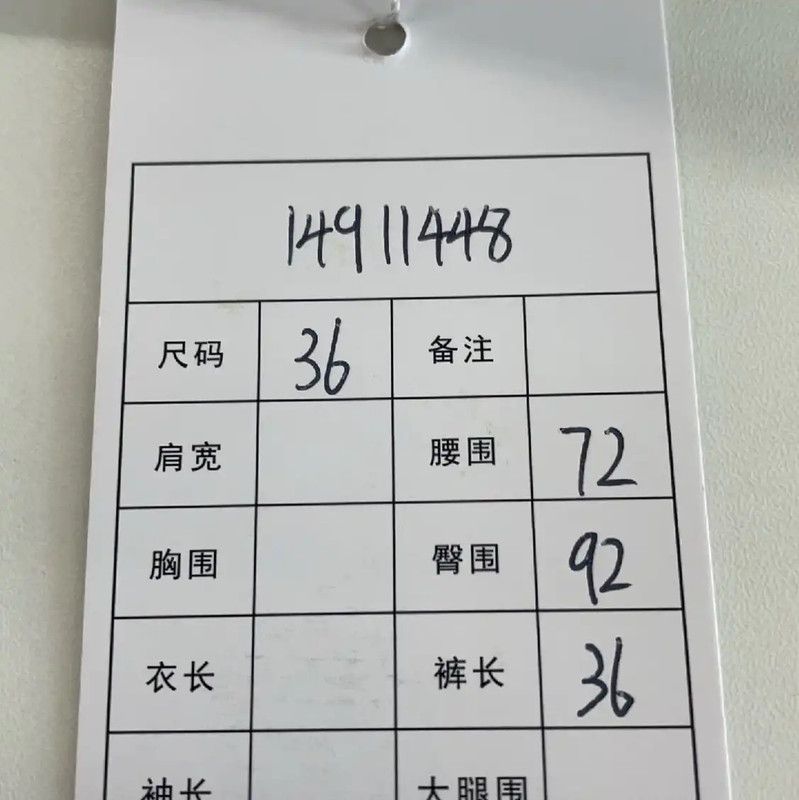 14911448
尺码 36 备注
肩宽 腰围 72
胸围 臀围 92
衣长 裤长 36
袖长 大腿围